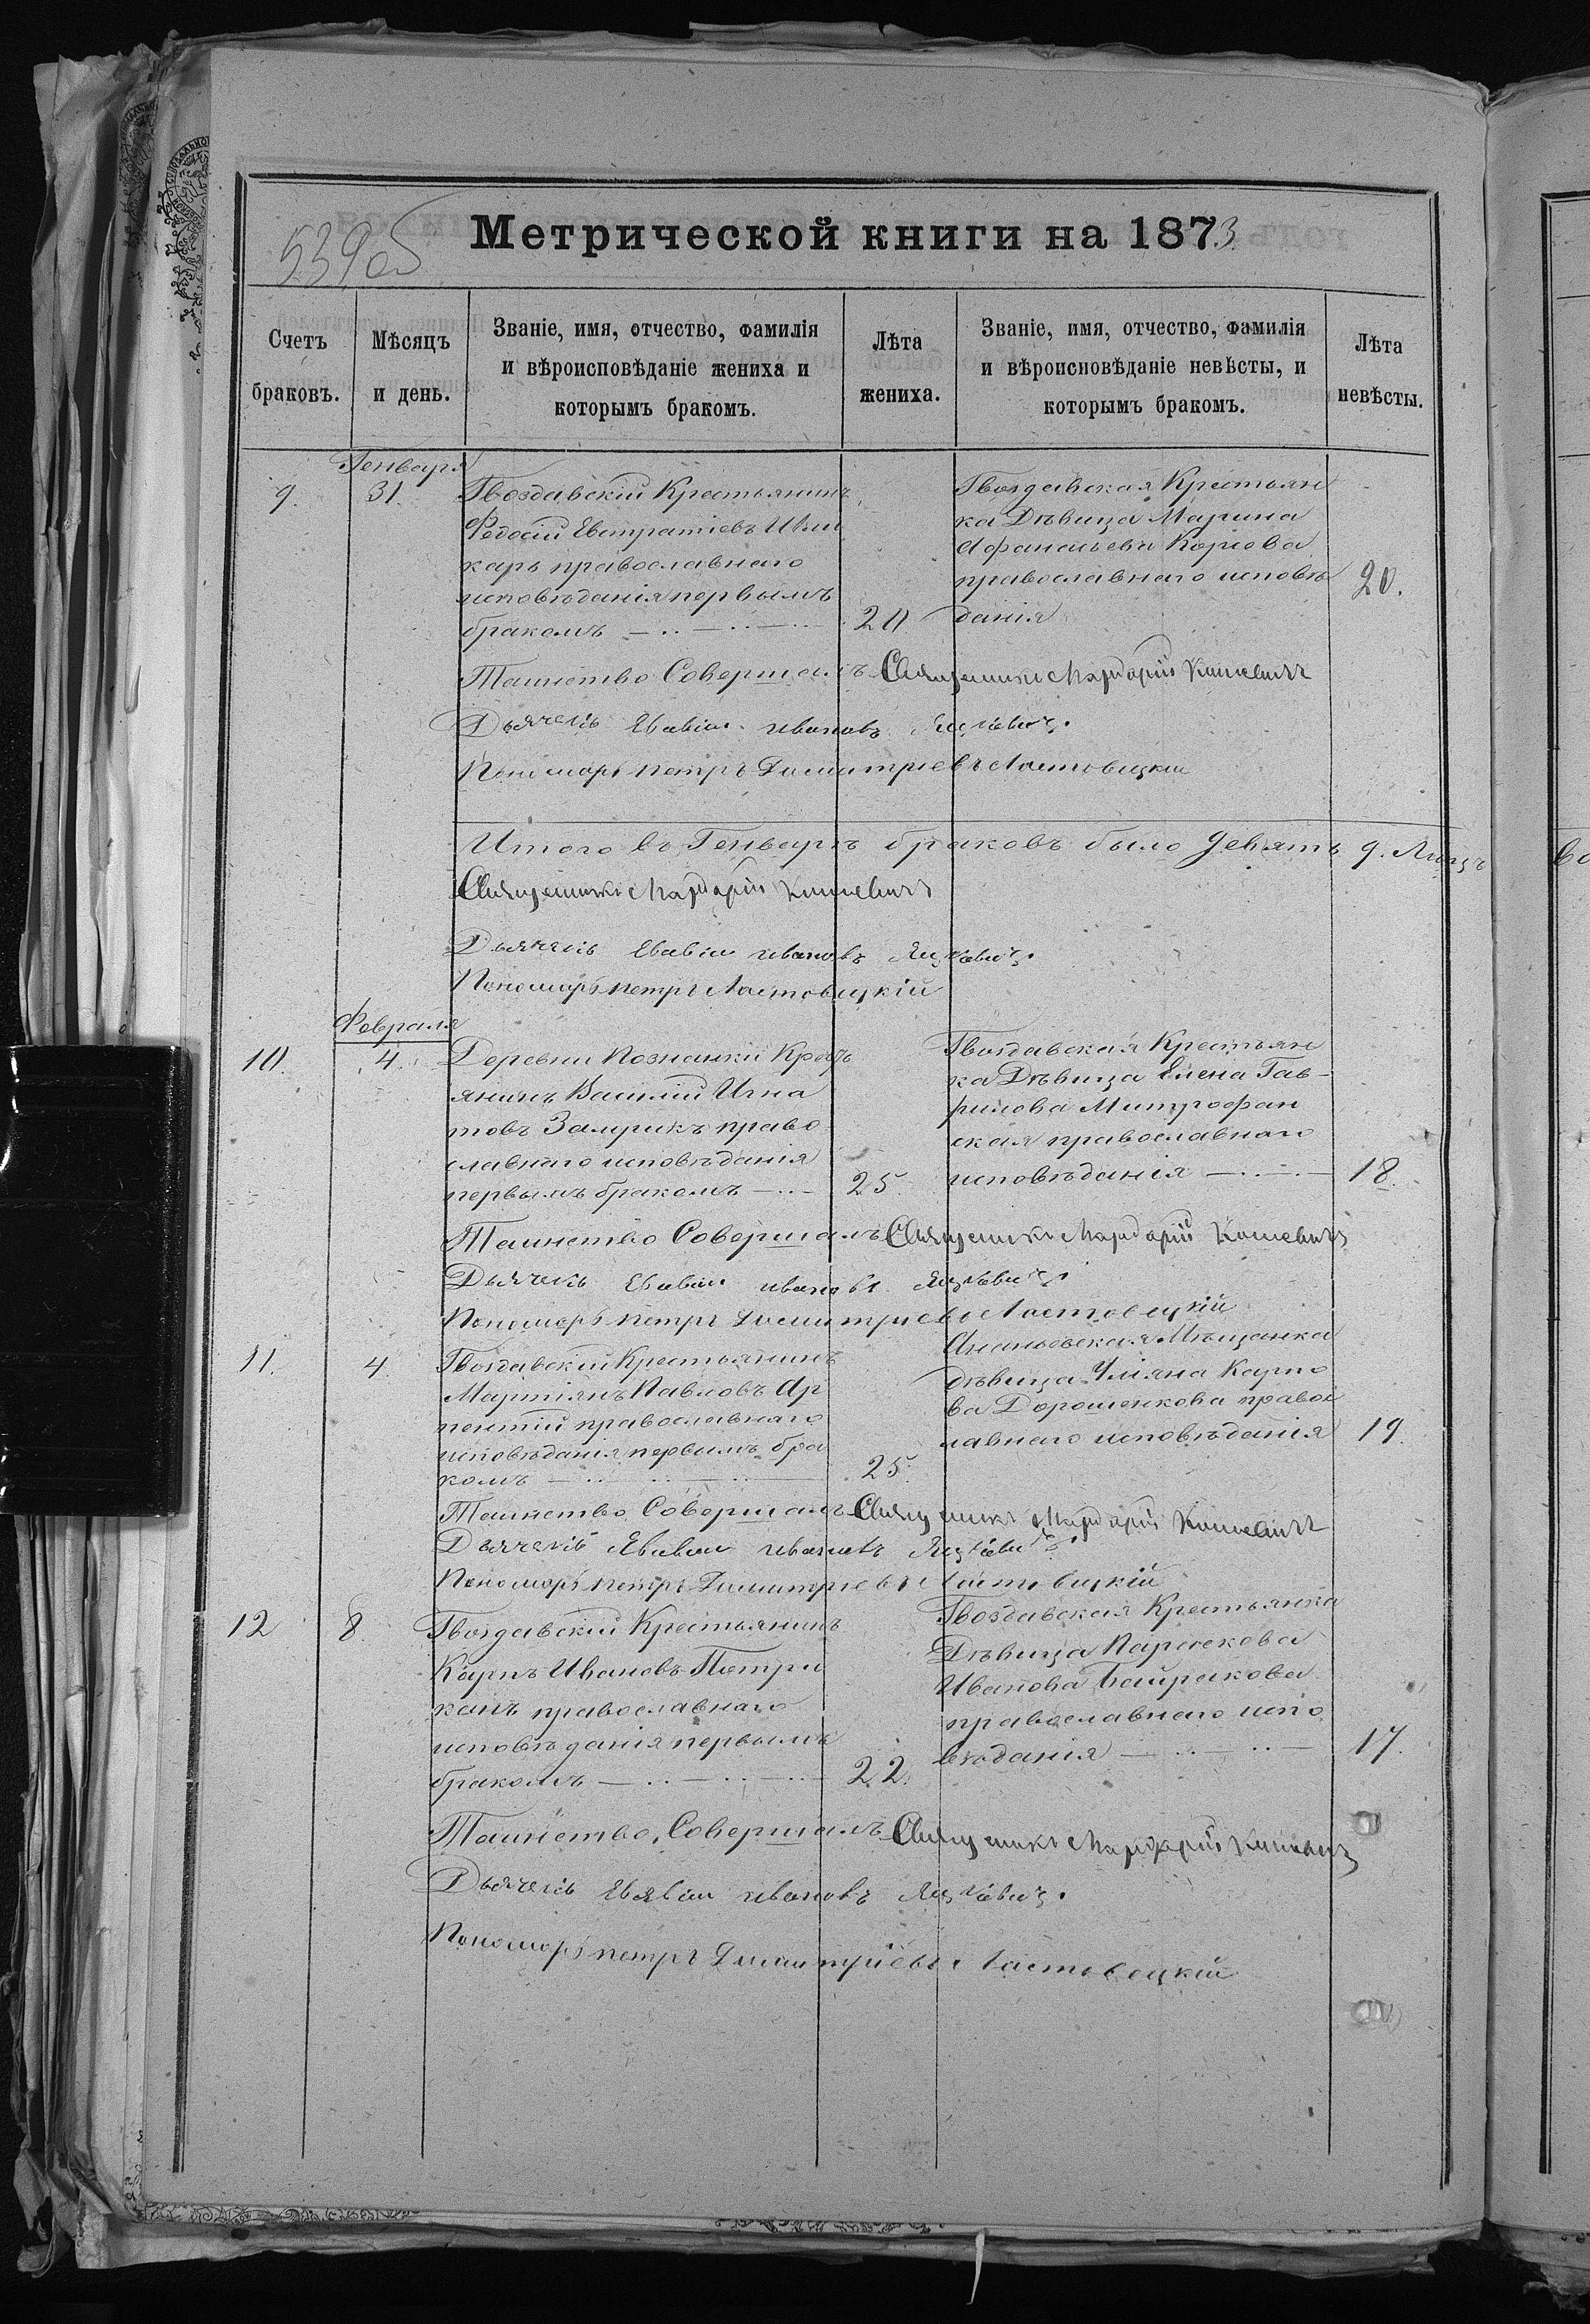 539об
Метрической книги на 1873
Счетъ браковъ.
Мѣсяцъ и день.
Званіе, имя, отчество, фамилія
и вѣроисповѣданіе жениха и
которымъ бракомъ.
Лѣта жениха.
Званіе, имя, отчество, фамилія
и вѣроисповѣданіе невѣсты, и
которымъ бракомъ.
Лѣта невѣсты.
Генваря
9. 31.
Гвоздавскій Крестьянинъ
Федосій Евстратіевъ
карь православнаго
исповѣданія первымъ
бракомъ
20
Гвоздавская Крестьян
ка Дѣвица Марина
Афанасьева
православнаго исповѣ
данія
20.
Таинство Совершалъ Священникъ Мардарій
Дьячекъ Ивановъ
Пономарь Петръ Димитріевъ Ластовецкій
Итого въ Генварѣ браковъ было девять 9.
Священникъ Мардарій
Дьячекъ Ивановъ
Пономарь Петръ Ластовецкій
Февраля
10. 4.
Деревни Познанки Кресть
янинъ Василій Игна
товъ Замрикъ право
славнаго исповѣданія
первымъ бракомъ
25
Гвоздавская Крестьян
ка Дѣвица Елена Гав-
рилова Митрофан
ская православнаго
исповѣданія
18.
Таинство Совершалъ Священникъ Мардарій
Дьячекъ Ивановъ
Пономарь Петръ Димитріевъ Ластовецкій
11. 4.
Гвоздавскій Крестьянинъ
Мартіянъ Павловъ Ар
пентій православнаго
исповѣданія первымъ бра
комъ
25.
Ананьевская Мѣщанка
дѣвица Уліяна Карпо
ва Дорошенкова правос
лавнаго исповѣданія
19.
Таинство Совершалъ Священникъ Мардарій
Дьячекъ Ивановъ
Пономарь Петръ Димитріевъ Ластовецкій
12 8.
Гвоздавскій Крестьянинъ
Карпъ Ивановъ Петри
канъ православнаго
исповѣданія первымъ
бракомъ
22.
Гвоздавская Крестьянка
Дѣвица Параскева
Иванова Байракова
православнаго испо
вѣданія
17.
Таинство Совершалъ Священникъ Мардарій
Дьячекъ Ивановъ
Пономарь Петръ Димитріевъ Ластовецкій